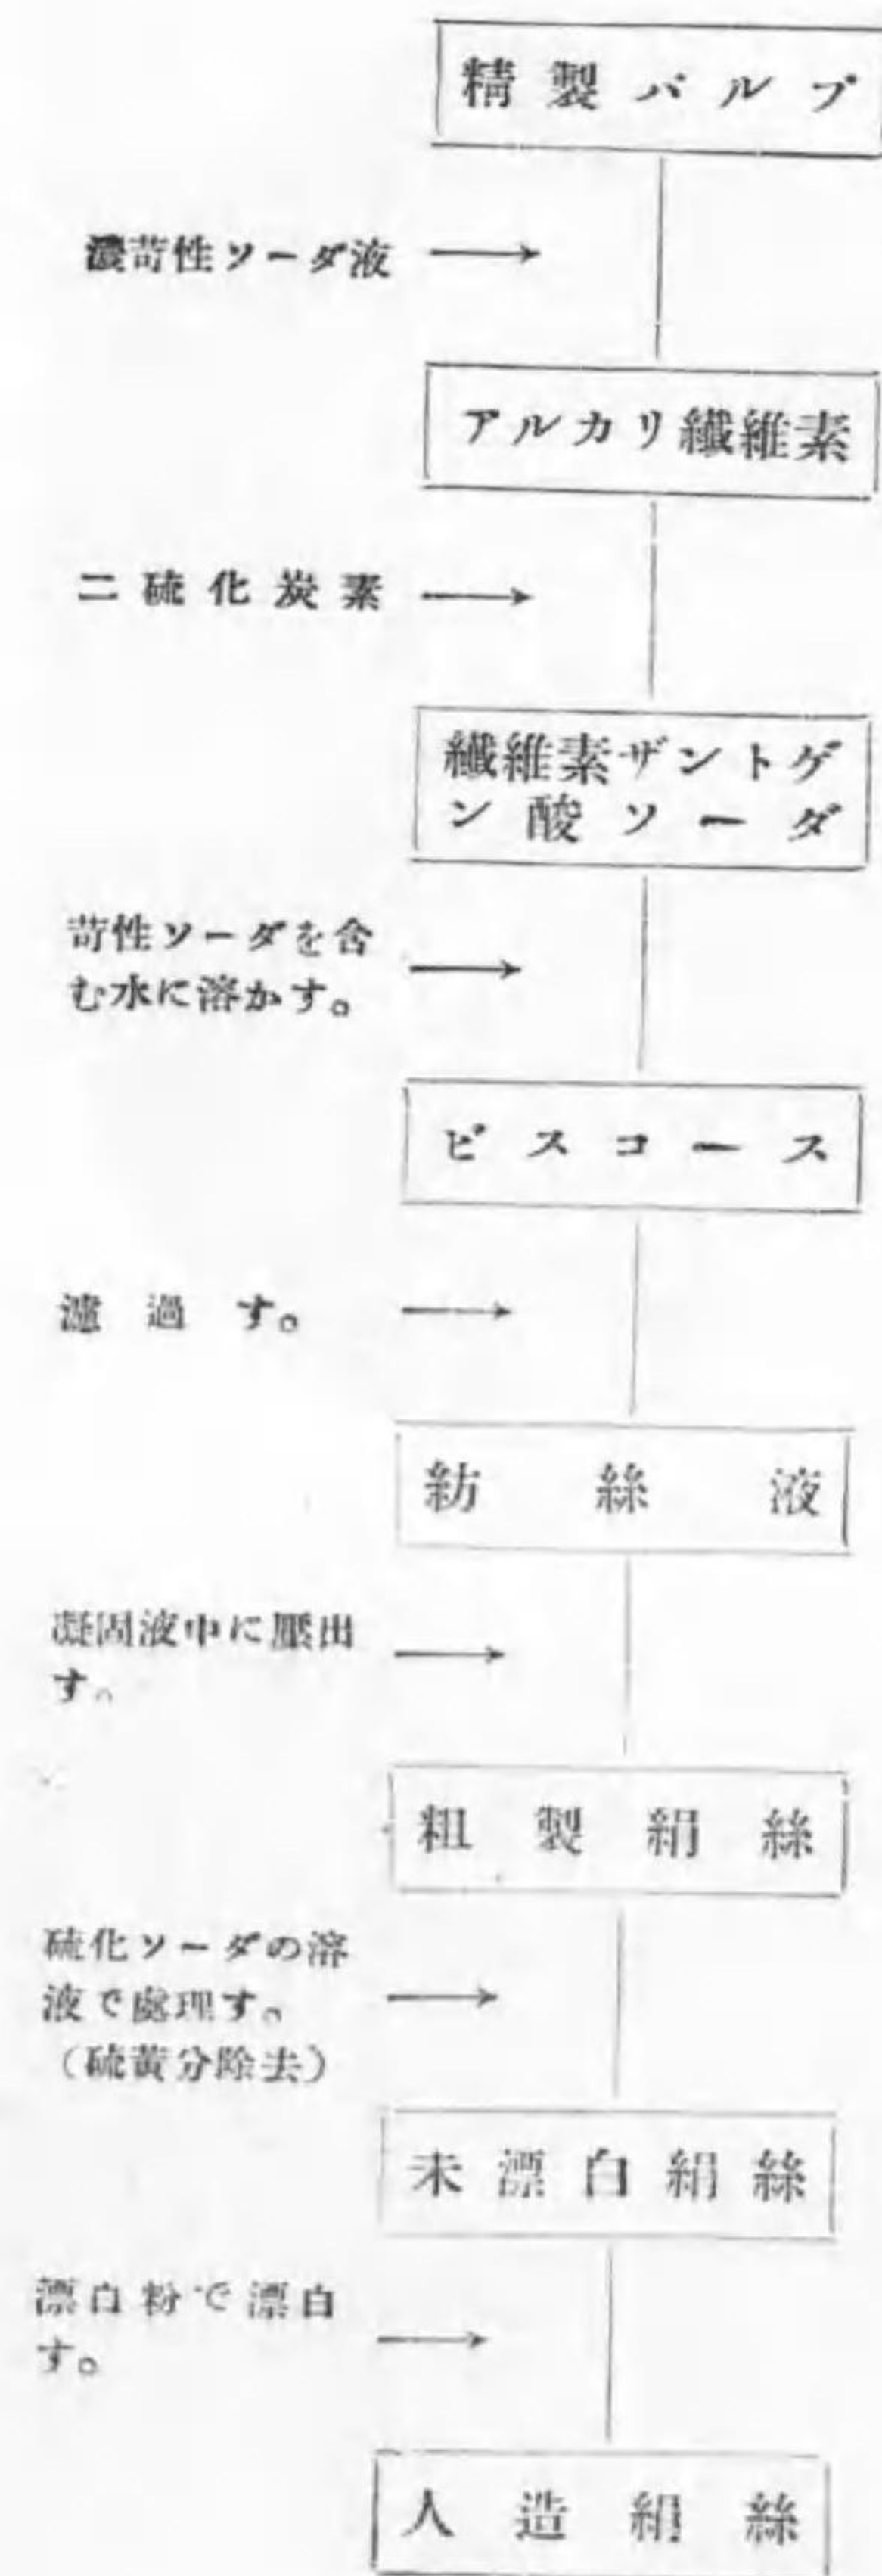 精製パルプ
濃苛性ソーダ液
アルカリ纎維素
二硫化炭素
纎維素ザントゲ
ン酸ソーダ
苛性ソーダを含
む水に溶かす。
ビスコース
濾過す。
紡絲液
凝固液中に壓出
す。
粗製絹絲
硫化ソーダの溶
液で處理す。
（硫黄分除去）
未漂白絹絲
漂白粉で漂白
す。
人造絹絲